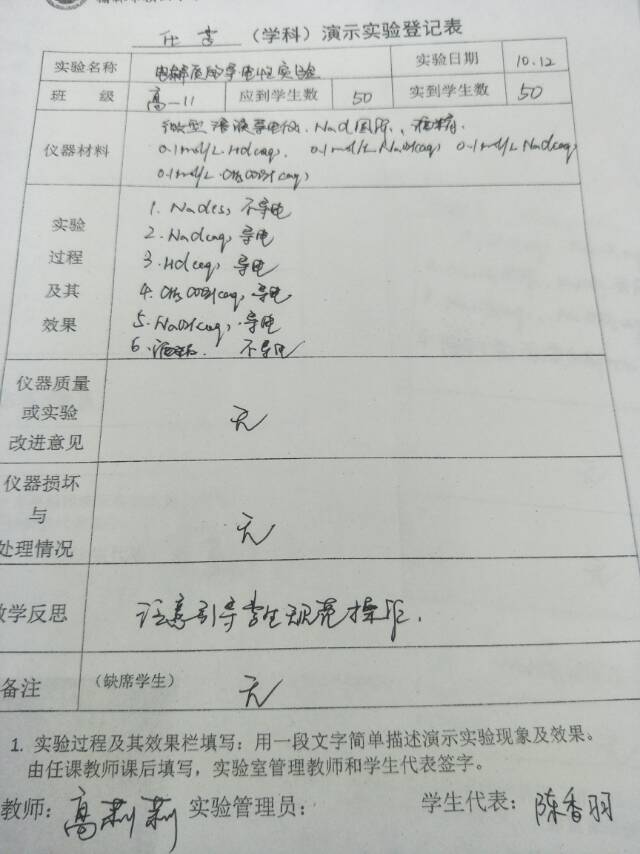 化学（学科）演示实验登记表
实验名称 电解质的导电性实验 实验日期 10.12
班 级 高一11 应到学生数 50 实到学生数 50
仪器材料 微型溶液导电仪、NaCl固体、酒精、
0.1mol/L HCl(aq), 0.1mol/L NaOH(aq), 0.1mol/L NaCl(aq)
0.1mol/L CH3COOH(aq)
实验
过程
及其
效果
1. NaCl(s), 不导电
2. NaCl(aq), 导电
3. HCl(aq), 导电
4. CH3COOH(aq), 导电
5. NaOH(aq), 导电
6. 酒精. 不导电
仪器质量
或实验
改进意见
无
仪器损坏
与
处理情况
无
学反思 注意引导学生规范操作.
备注 （缺席学生） 无
1. 实验过程及其效果栏填写：用一段文字简单描述演示实验现象及效果。
由任课教师课后填写，实验室管理教师和学生代表签字。
教师：高莉莉 实验管理员： 学生代表：陈香羽